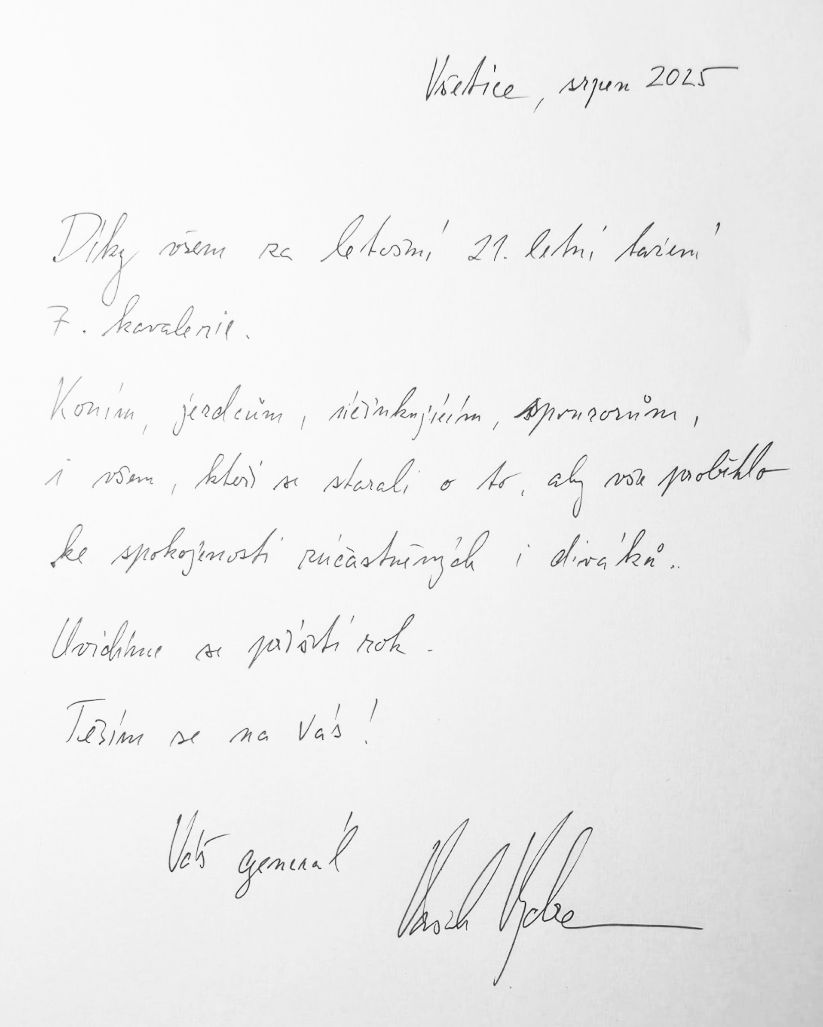 Všetice, srpen 2025
Díky všem za letošní 21. letní tažení
7. kavalerie.
Koním, jezdcům, účinkujícím, sponzorům,
i všem, kteří se starali o to, aby vše proběhlo
ke spokojenosti zúčastněných i diváků.
Uvidíme se příští rok.
Těším se na Vás!
Váš generál Vašek Vydra